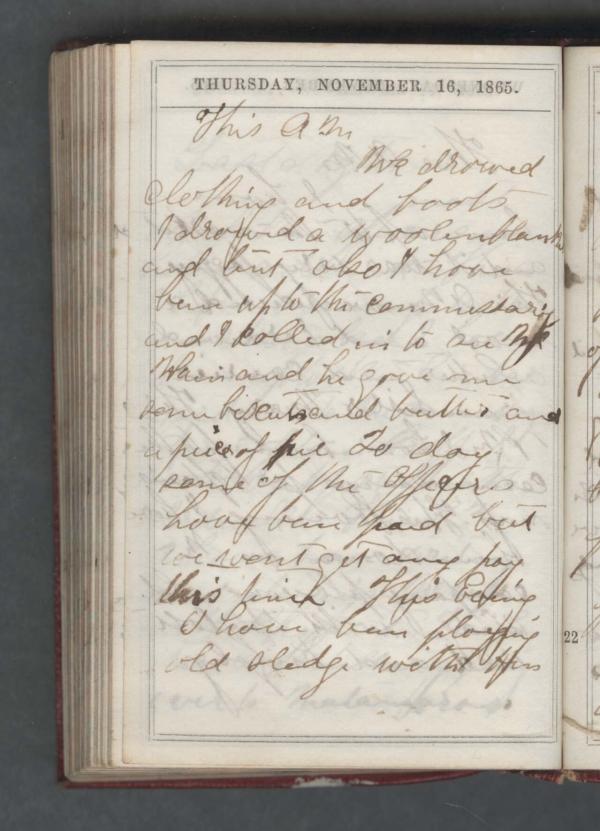 THURSDAY, NOVEMBER 16, 1865.
This A M
We drowed
clothing and boots
I drowed a woolen blanket
and tent also I have
been up to the commissary
and I called in to see Mr
and he gave me
some biscuts and butter and
a piece of pie To day
some of the officers
have been paid but
we wont get any pay
this time This Evning
I have been playing
old sledge with
22